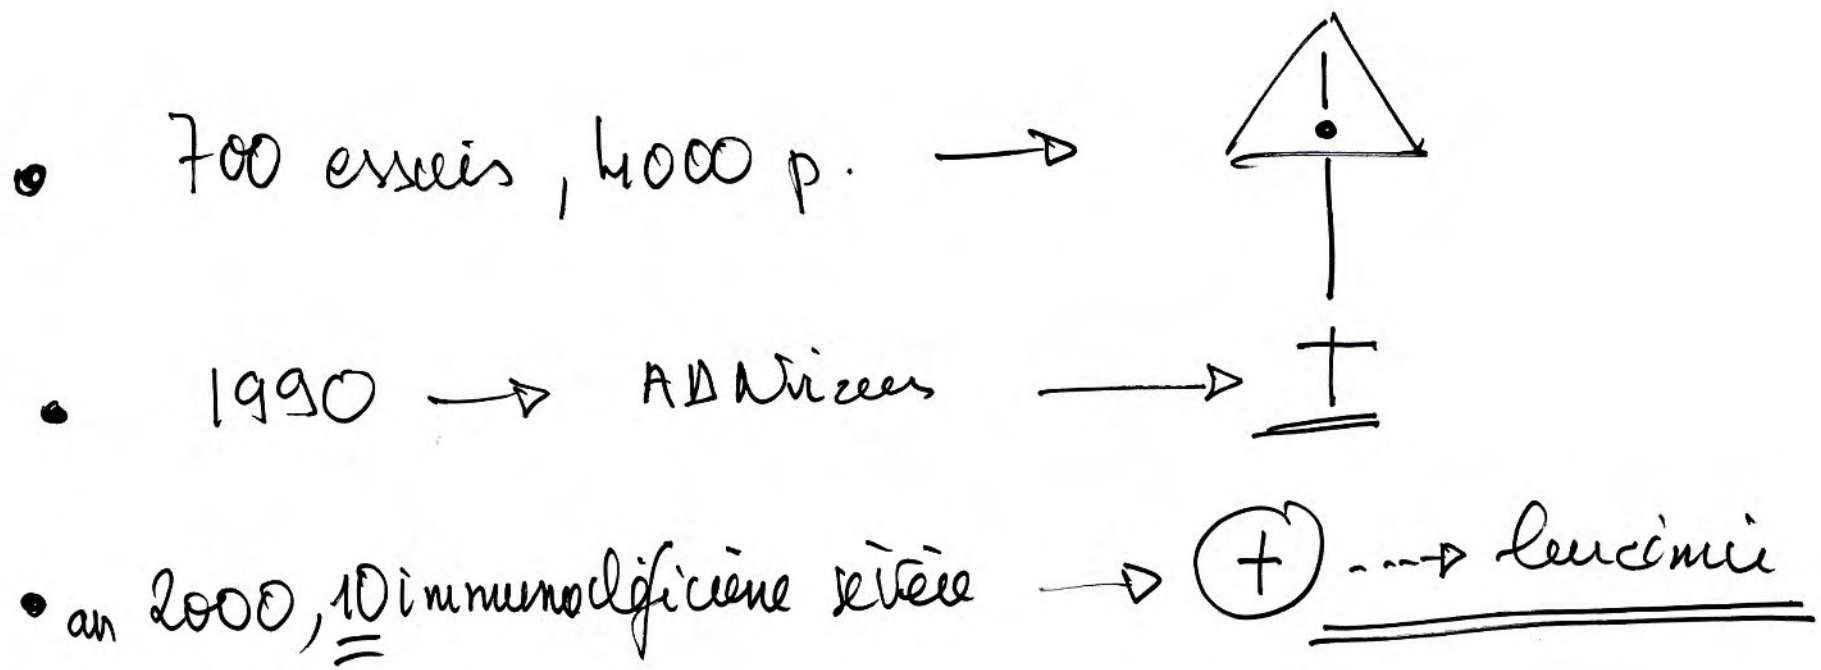 • 700 essais, 4000 p. → !
• 1990 → ADN virus → †
• an 2000, 10 immunodéficiène sévère → + ⇢ leucémie